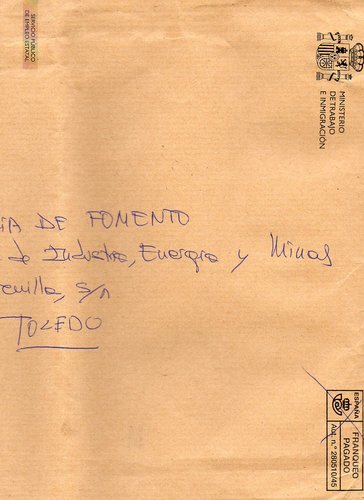 SERVICIO PÚBLICO
DE EMPLEO ESTATAL
MINISTERIO
DE TRABAJO
E INMIGRACIÓN
ÍA DE FOMENTO
de Industria, Energía y Minas
s/n
TOLEDO
ESPAÑA
FRANQUEO
PAGADO
Aut. n.º 280510/45